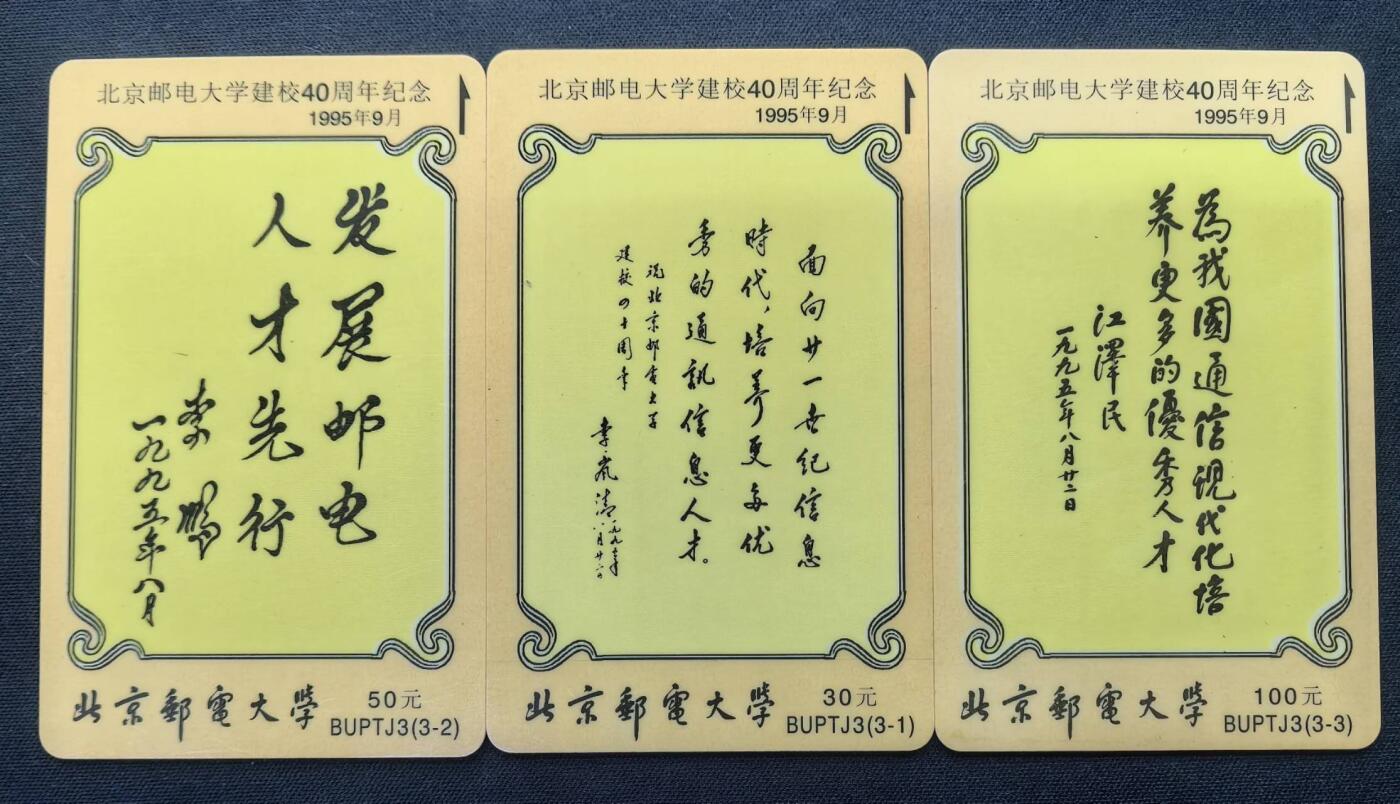 北京邮电大学建校40周年纪念
1995年9月
发展邮电
人才先行
李鹏
一九九五年八月
北京郵電大學
50元
BUPTJ3(3-2)
北京邮电大学建校40周年纪念
1995年9月
面向廿一世纪信息
時代，培养更多优
秀的通訊信息人才。
祝北京邮电大学
建校四十周年
李岚清
一九九五年
八月廿六日
北京郵電大學
30元
BUPTJ3(3-1)
北京邮电大学建校40周年纪念
1995年9月
為我國通信现代化培
养更多的優秀人才
江澤民
一九九五年八月廿二日
北京郵電大學
100元
BUPTJ3(3-3)